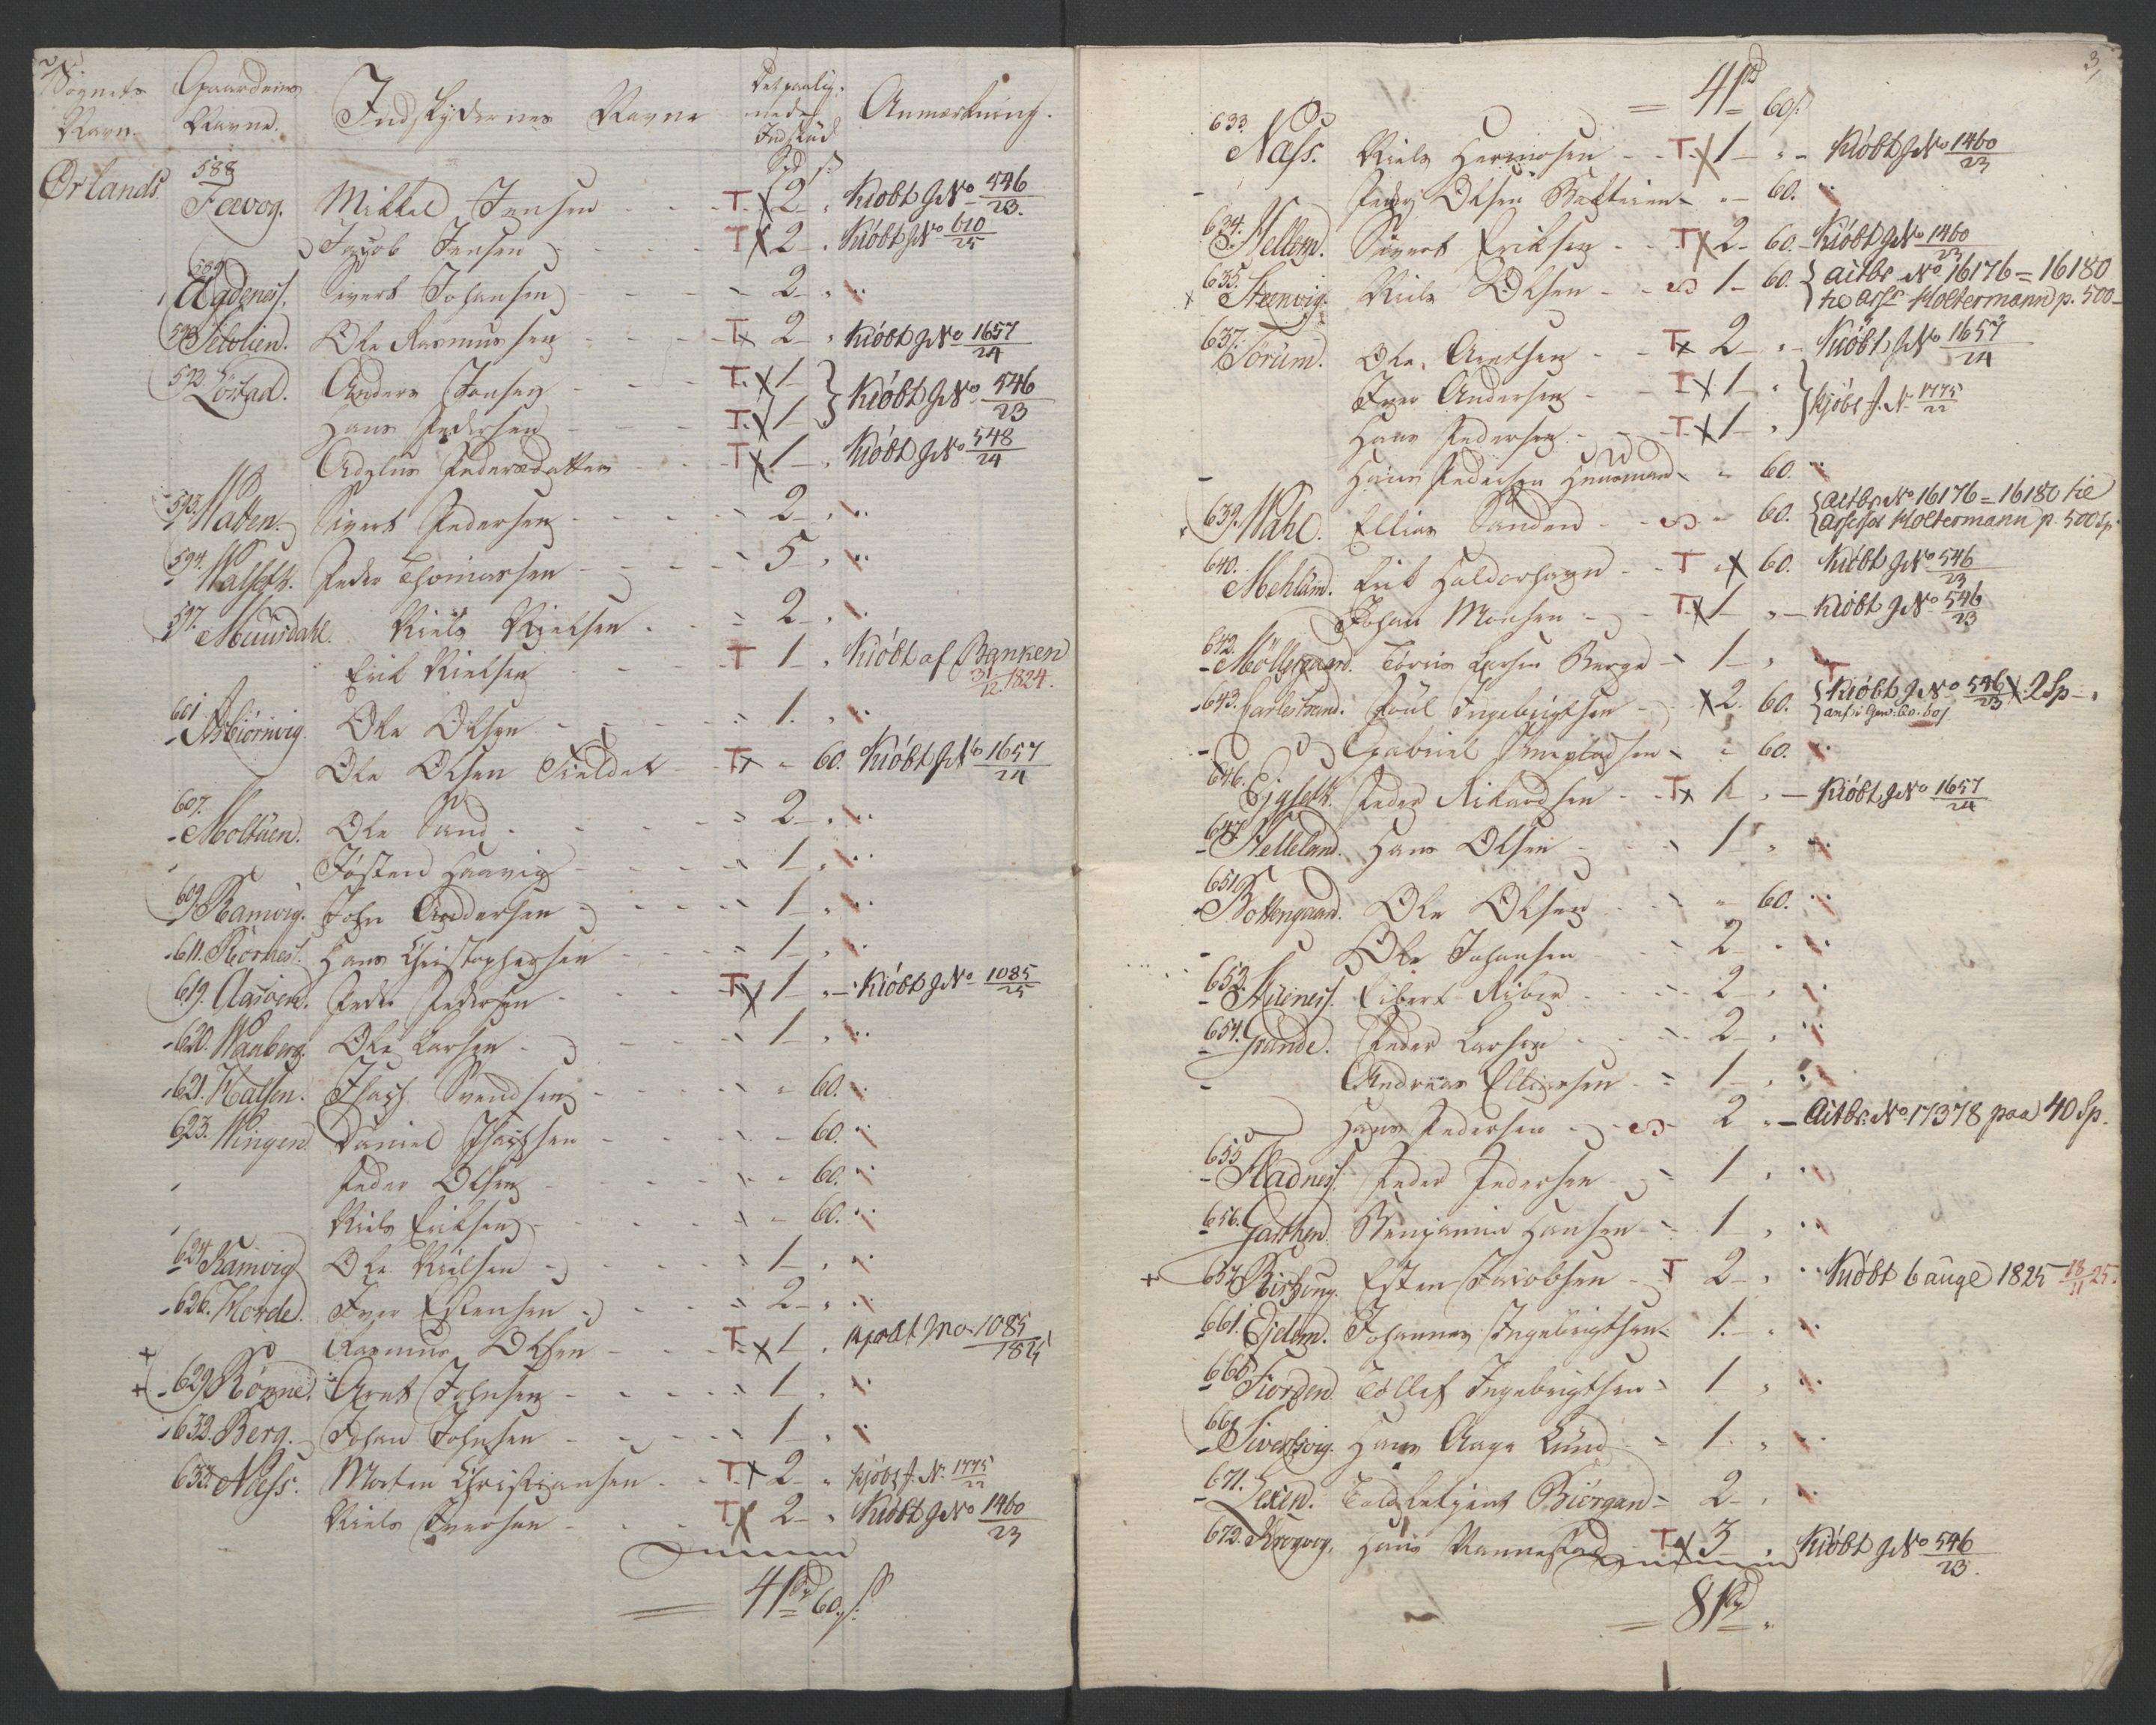 Sognets Navn Gaardenes Navne. Indskydernes Navne Det paalignede Indskud Anmærkning.
Spd s:
Ørlands
588 Fævog. Mikkel Jensen T. x 2 „ Kiøbt J No 546/23.
Jacob Jensen T x 2 „ Kiøbt J No 610/25
589 Agdeness. Sivert Johansen 2 „
590 Selvlien. Ole Rasmussen Tx 2 „ Kiøbt J No 1657/24
592 Anders Jonsen T. x 1 } Kiøbt J No 546/23
Hans Pedersen T. x 1
Pedersdatter T x 1 „ Kiøbt J No 548/24
593. Hatten. Sivert Pedersen 2 „
594. Walseth. Peder Thomassen 5 „
597. Muusdahl. Niels Nielsen 2 „
Erik Nielsen T 1 „ Kiøbt af Banken 31/12 1824.
601 Asbiörnvig Ole Olsen 1. „
Ole Olsen Fieldet Tx „ 60. Kiøbt J No 1657/24
607. Moltuen. Ole Sand 2 „
Josten Haavig 1 „
609 Ramvig. John Andersen 1 „
611. Rörnes. Hans Christophersen 1 „
619. Aasaien. Peder Pedersen T x 1 „ Kiøbt J No 1085/25
620. Wanberg. Ole Larsen 1 „
621. Kalsen. Isach Svendsen „ 60.
623. Wingen. Daniel Isachsen „ 60.
Peder Olsen „ 60.
Niels Eriksen „ 60.
624 Ramvig Ole Nielsen 1 „
626. Horde. Iver Estensen 2 „
+ Rasmus Olsen T. x 1 „ Kjøbt J No 1085/1825
+ 629 Rönne. Arnt Johnsen 1 „
632. Berg. Johan Johnsen 1 „
633. Ness. Morten Christiansen T. x 2 „ kjøbt J. N. 1775/22
Niels Iversen T. x 2 „ Kiøbt J No 1460/23
41 Spd 60 s:
3,
41 Spd 60 s:
633. Næss. Niels Hermosen T. x 1 „ Kiøbt J No 1460/23
Peder Olsen „ 60.
634. Hellem. Sivert Eriksen T x 2 60. Kiøbt J No 1460/23
x 635. Steenvig. Niels Olsen S 1 60. { Actbr No 16176 = 16180
til Ass: Holtermann p. 500
637. Sörum. Ole Arntsen Tx 2 „ Kiøbt J No 1657/24
Iver Andersen T x 1 „ } kjøbt J. N. 1775/22
Hans Pedersen T. x 1 „
Hans Pedersen Huusmand „ 60.
639. Wahl. Ellias Sanden S „ 60. { Actbr No 16176 = 16180 til
Assessor Holtermann p. 500 Sp.
640. Mehlum. Erik Haldorhavn T „ x 60. Kiøbt J No 546/23
Johan Monsen T. x 1 „ Kiøbt J No 546/23
642. Möllgaard. Töres Larsen Berge 1 „
643. Carlestrand. Poul Ingebrigtsen x 2. 60. { T Kiøbt J No 546/23 x 2 Sp „
Gabriel „ 60.
646. Eidseth. Peder Rikardsen Tx 1 „ Kiøbt J No 1657/24
647 Helleland. Hans Olsen 1 „
651 Bottengaard. Ole Olsen „ 60.
Ole Johansen 2 „
653. Eibert Riber 2 „
654. Grande. Peder Larsen 2 „
Andreas Elliasen 1 „
Hans Pedersen S 2 „ Actbr. No 17378 paa 40 Sp.
655 Fladness. Peder Pedersen 1 „
656. Garthen. Benjamin Hansen 1 „
+ 657 Esten Jacobsen T 2 „ Kiøbt 6 auge 1825 18/11 25.
661. Eidem. Johannes Ingebrigtsen 1. „
665 Fiorden. Tollef Ingebrigtsen 1 „
668 Sivertsvig. Hans Aage Lund 1. „
671. Lexen. Toldbetjent Biörgan 2 „
672. Krogvog. Hans Rannestad T. x 3 „ Kiøbt J No 546/23.
81 Spd „